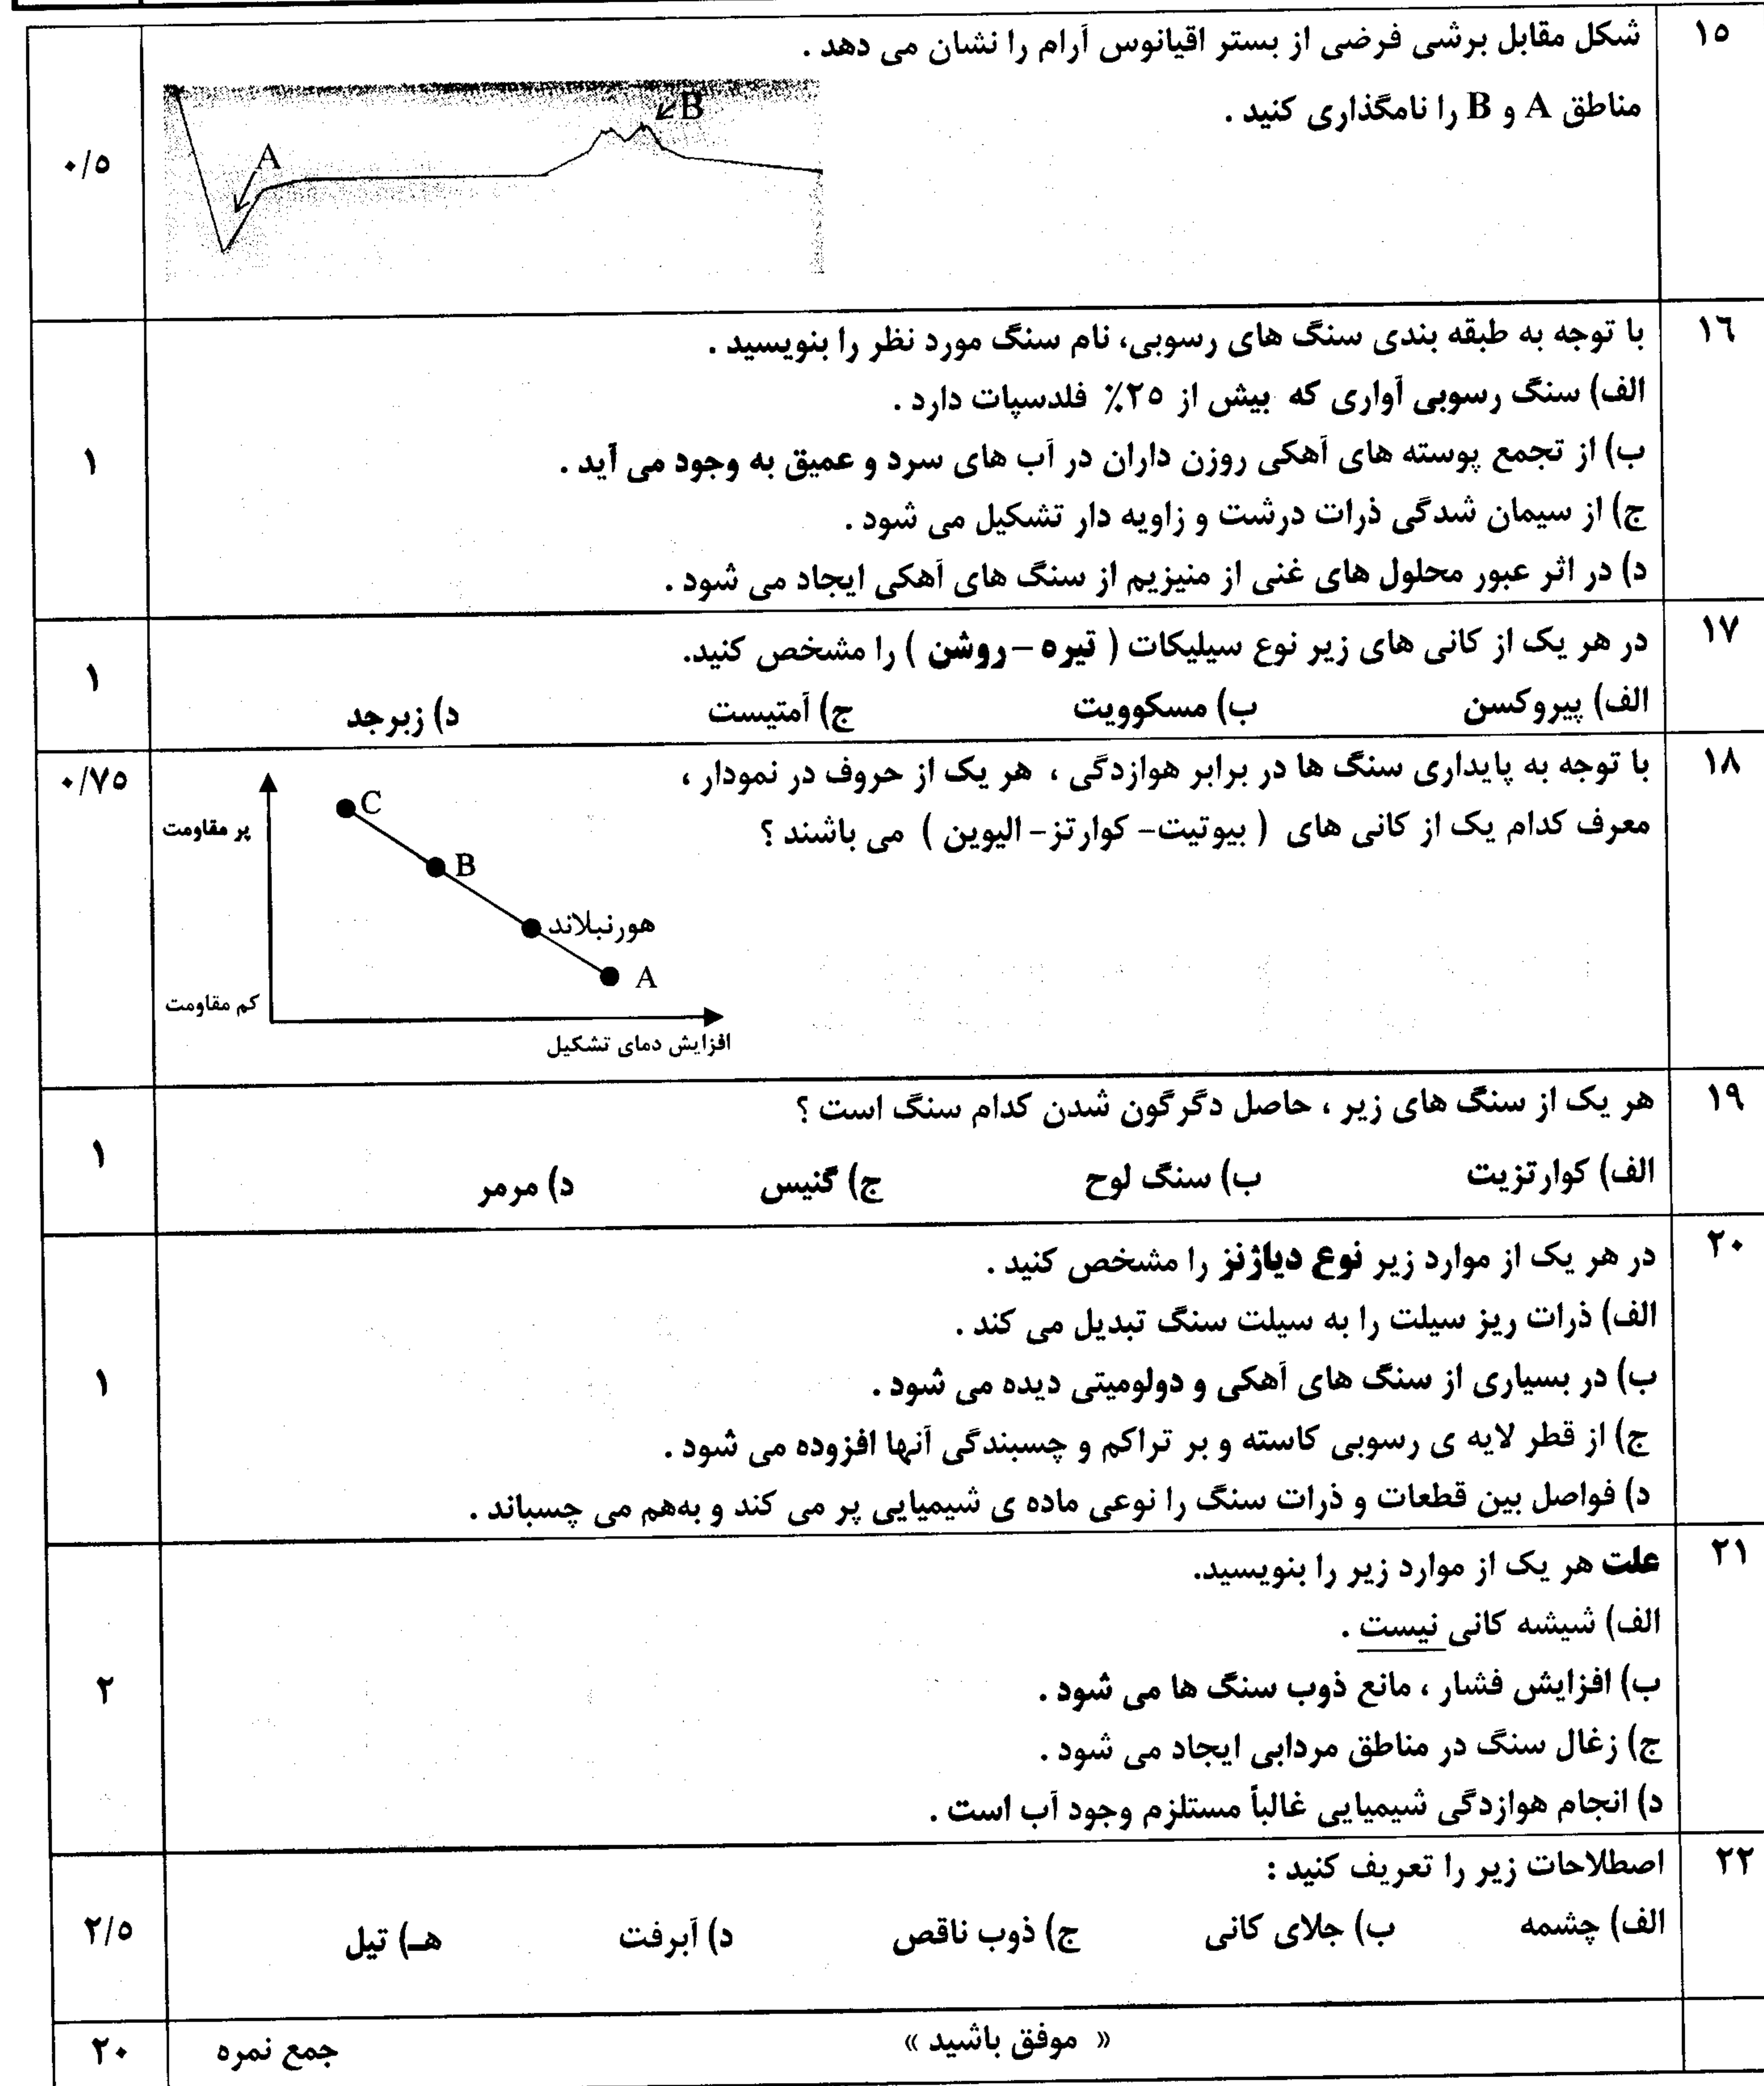 ۱۵
شکل مقابل برشی فرضی از بستر اقیانوس آرام را نشان می دهد .
مناطق A و B را نامگذاری کنید .
B
A
۰/۵
۱۶
با توجه به طبقه بندی سنگ های رسوبی، نام سنگ مورد نظر را بنویسید .
الف) سنگ رسوبی آواری که بیش از ۲۵٪ فلدسپات دارد .
ب) از تجمع پوسته های آهکی روزن داران در آب های سرد و عمیق به وجود می آید .
ج) از سیمان شدگی ذرات درشت و زاویه دار تشکیل می شود .
د) در اثر عبور محلول های غنی از منیزیم از سنگ های آهکی ایجاد می شود .
۱
۱۷
در هر یک از کانی های زیر نوع سیلیکات ( تیره – روشن ) را مشخص کنید.
الف) پیروکسن ب) مسکوویت ج) آمتیست د) زبرجد
۱
۱۸
با توجه به پایداری سنگ ها در برابر هوازدگی ، هر یک از حروف در نمودار ،
معرف کدام یک از کانی های ( بیوتیت- کوارتز- الیوین ) می باشند ؟
پر مقاومت
C
B
هورنبلاند
A
کم مقاومت
افزایش دمای تشکیل
۰/۷۵
۱۹
هر یک از سنگ های زیر ، حاصل دگرگون شدن کدام سنگ است ؟
الف) کوارتزیت ب) سنگ لوح ج) گنیس د) مرمر
۱
۲۰
در هر یک از موارد زیر نوع دیاژنز را مشخص کنید .
الف) ذرات ریز سیلت را به سیلت سنگ تبدیل می کند .
ب) در بسیاری از سنگ های آهکی و دولومیتی دیده می شود .
ج) از قطر لایه ی رسوبی کاسته و بر تراکم و چسبندگی آنها افزوده می شود .
د) فواصل بین قطعات و ذرات سنگ را نوعی ماده ی شیمیایی پر می کند و بههم می چسباند .
۱
۲۱
علت هر یک از موارد زیر را بنویسید.
الف) شیشه کانی نیست .
ب) افزایش فشار ، مانع ذوب سنگ ها می شود .
ج) زغال سنگ در مناطق مردابی ایجاد می شود .
د) انجام هوازدگی شیمیایی غالباً مستلزم وجود آب است .
۲
۲۲
اصطلاحات زیر را تعریف کنید :
الف) چشمه ب) جلای کانی ج) ذوب ناقص د) آبرفت هـ) تیل
۲/۵
« موفق باشید »
جمع نمره
۲۰